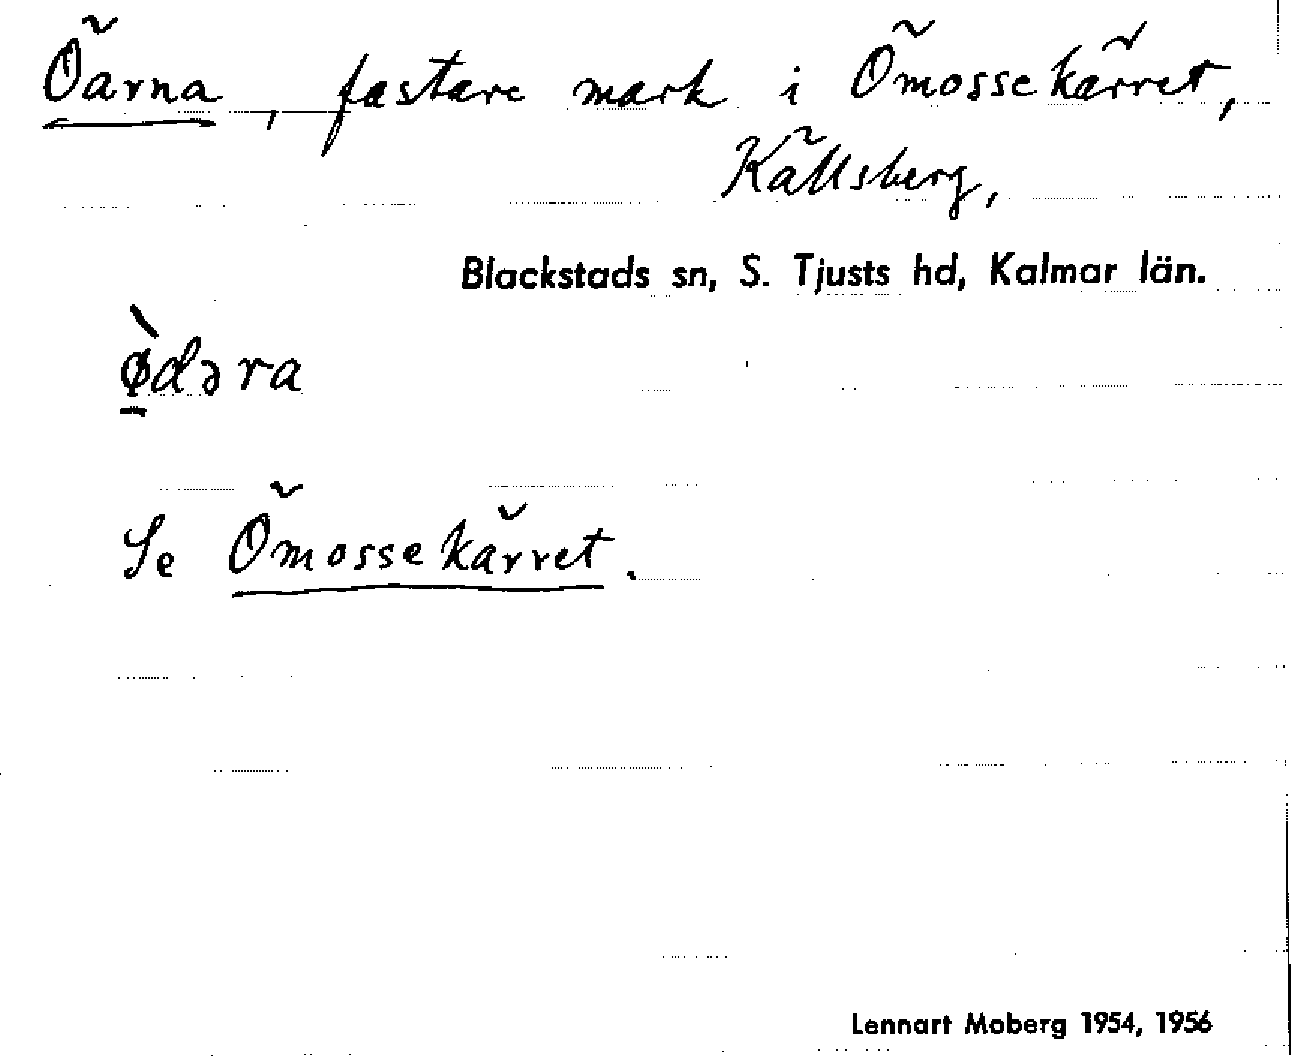 Öarna, fastare mark i Ömossekärret,
Källsberg,
Blackstads sn, S. Tjusts hd, Kalmar län.
ø̱̀dəra
Se Ömossekärret.
Lennart Moberg 1954, 1956